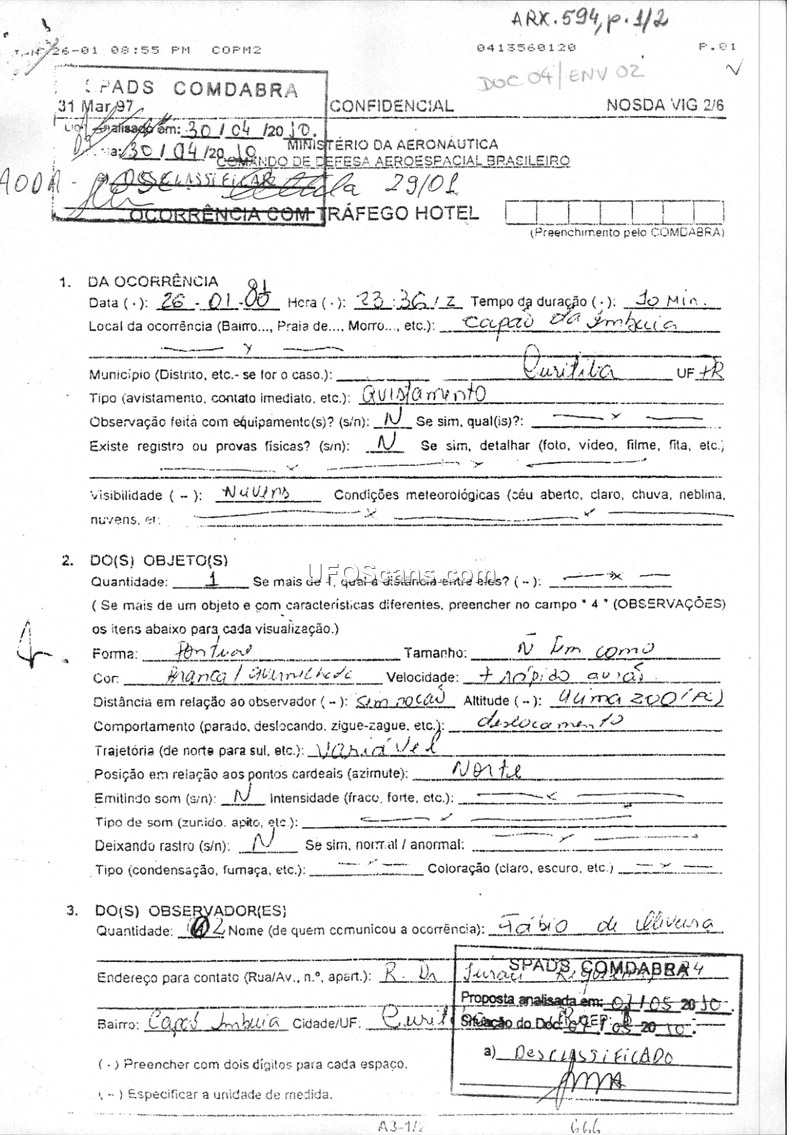 ARX. 594, p. 1/2
26-01 08:55 PM COPM2 0413560120 P.01
DOC 04/ENV 02
SPADS COMDABRA
31 Mar 97 CONFIDENCIAL NOSDA VIG 2/6
analisado em: 30/04/2010.
30/04/2010 MINISTÉRIO DA AERONÁUTICA
COMANDO DE DEFESA AEROESPACIAL BRASILEIRO
DESCLASSIFICAR 29/01
OCORRÊNCIA COM TRÁFEGO HOTEL
(Preenchimento pelo COMDABRA)
1. DA OCORRÊNCIA
Data (·): 26-01-00 01 Hora (·): 23:36/Z Tempo da duração (·): 10 Min.
Local da ocorrência (Bairro..., Praia de..., Morro..., etc.): Capão da Imbuia
Município (Distrito, etc.- se for o caso.): Curitiba UF PR
Tipo (avistamento, contato imediato, etc.): Avistamento
Observação feita com equipamento(s)? (s/n): N Se sim, qual(is)?:
Existe registro ou provas físicas? (s/n): N Se sim, detalhar (foto, vídeo, filme, fita, etc.)
Visibilidade (--): Nuvens Condições meteorológicas (céu aberto, claro, chuva, neblina,
nuvens, etc
2. DO(S) OBJETO(S)
UFOScans.com
Quantidade: 1 Se mais de 1, qual a distância entre eles? (--):
( Se mais de um objeto e com características diferentes, preencher no campo " 4 " (OBSERVAÇÕES)
os itens abaixo para cada visualização.)
Forma: Pontual Tamanho: Ñ tem como
Cor: Branca / avermelhada Velocidade: + rápido avião
Distância em relação ao observador (--): sem noção Altitude (--): acima 200 (Pé)
Comportamento (parado, deslocando, zigue-zague, etc.): deslocamento
Trajetória (de norte para sul, etc.): variável
Posição em relação aos pontos cardeais (azimute): Norte
Emitindo som (s/n): N Intensidade (fraco, forte, etc.):
Tipo de som (zunido, apito, etc.):
Deixando rastro (s/n): N Se sim, normal / anormal:
Tipo (condensação, fumaça, etc.): Coloração (claro, escuro, etc.)
3. DO(S) OBSERVADOR(ES)
Quantidade: 02 Nome (de quem comunicou a ocorrência): Fábio de Oliveira
SPADS COMDABRA
Endereço para contato (Rua/Av., n.º, apart.): R. Dr
Proposta analisada em: 01/05 2010.
Bairro: Capão Imbuia Cidade/UF: Curitiba
Situação do Doc: 01/05 2010.
a) DESCLASSIFICADO
(·) Preencher com dois dígitos para cada espaço.
(--) Especificar a unidade de medida.
A3-1/2 666